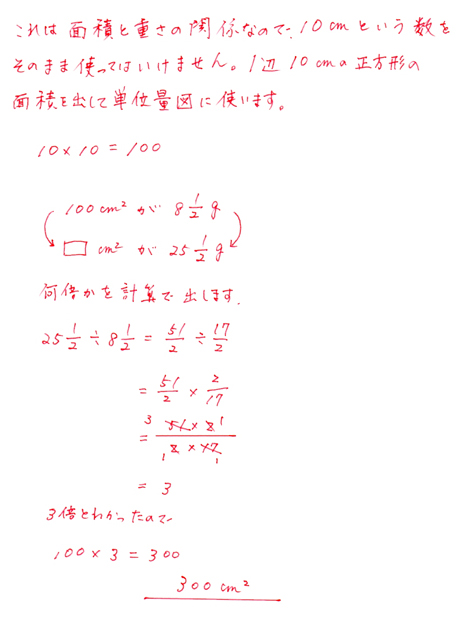 これは面積と重さの関係なので、10cmという数を
そのまま使ってはいけません。1辺10cmの正方形の
面積を出して単位量図に使います。
10×10=100
100cm²が 8 1/2 g
□ cm²が 25 1/2 g
何倍かを計算で出します.
25 1/2 ÷ 8 1/2 = 51/2 ÷ 17/2
= 51/2 × 2/17
= (51×2)/(2×17) 3 1 1 1
= 3
3倍とわかったので
100×3=300
300cm²